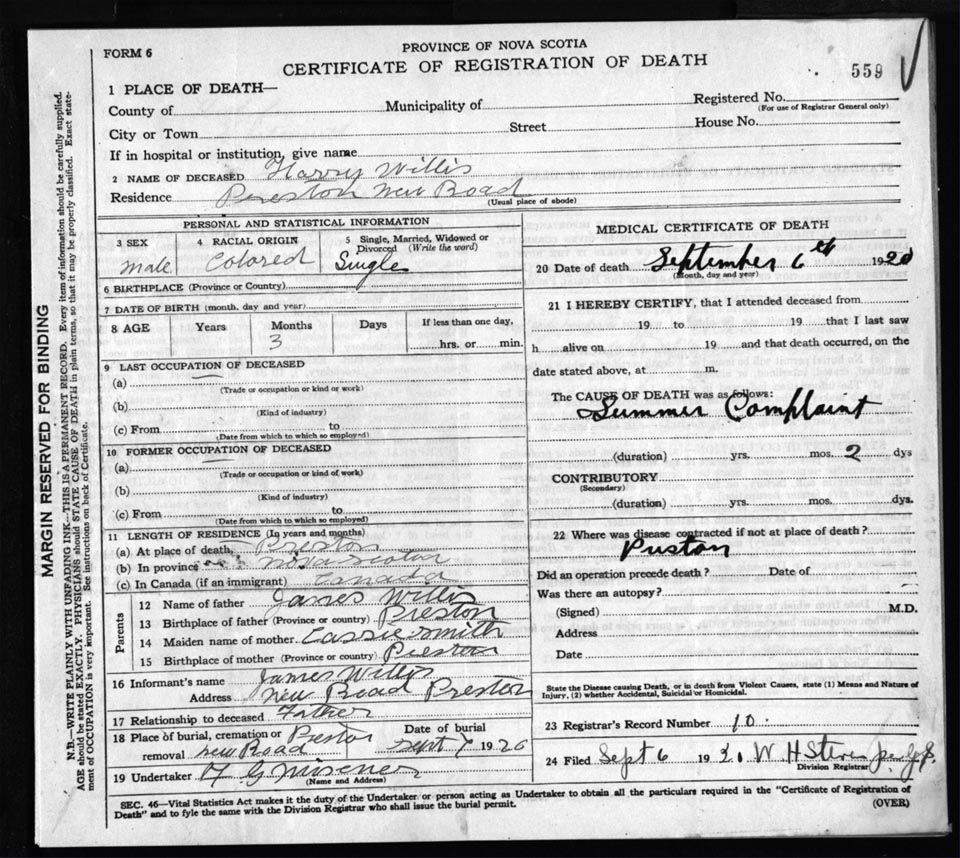 FORM 6
PROVINCE OF NOVA SCOTIA
CERTIFICATE OF REGISTRATION OF DEATH
559
1 PLACE OF DEATH—
County of Municipality of Registered No.
(For use of Registrar General only)
City or Town Street House No.
If in hospital or institution, give name
2 NAME OF DECEASED Harry Willis
Residence Preston New Road
(Usual place of abode)
PERSONAL AND STATISTICAL INFORMATION
3 SEX 4 RACIAL ORIGIN 5 Single, Married, Widowed or
Divorced (Write the word)
Male Colored Single
6 BIRTHPLACE (Province or Country)
7 DATE OF BIRTH (month, day and year)
8 AGE Years Months Days If less than one day,
3 hrs. or min.
9 LAST OCCUPATION OF DECEASED
(a)
(Trade or occupation or kind or work)
(b)
(Kind of industry)
(c) From to
(Date from which to which so employed)
10 FORMER OCCUPATION OF DECEASED
(a)
(Trade or occupation or kind of work)
(b)
(Kind of industry)
(c) From to
(Date from which to which so employed)
11 LENGTH OF RESIDENCE (In years and months)
(a) At place of death, Preston
(b) In province Nova Scotia
(c) In Canada (if an immigrant) Canada
Parents
12 Name of father James Willis
13 Birthplace of father (Province or country) Preston
14 Maiden name of mother Cassie Smith
15 Birthplace of mother (Province or country) Preston
16 Informant's name James Willis
Address New Road Preston
17 Relationship to deceased Father
18 Place of burial, cremation or Preston Date of burial
removal New Road Sept 7 1920
19 Undertaker
(Name and Address)
MEDICAL CERTIFICATE OF DEATH
20 Date of death September 6th 1920
(Month, day and year)
21 I HEREBY CERTIFY, that I attended deceased from
19 to 19 that I last saw
h alive on 19 and that death occurred, on the
date stated above, at m.
The CAUSE OF DEATH was as follows:
Summer Complaint
(duration) yrs. mos. 2 dys
CONTRIBUTORY
(Secondary)
(duration) yrs. mos. dys.
22 Where was disease contracted if not at place of death?
Preston
Did an operation precede death? Date of
Was there an autopsy?
(Signed) M.D.
Address
Date
State the Disease causing Death, or in death from Violent Causes, state (1) Means and Nature of
Injury, (2) whether Accidental, Suicidal or Homicidal.
23 Registrar's Record Number 10.
24 Filed Sept 6 1920 W. H.
Division Registrar
SEC. 46—Vital Statistics Act makes it the duty of the Undertaker or person acting as Undertaker to obtain all the particulars required in the "Certificate of Registration of
Death" and to fyle the same with the Division Registrar who shall issue the burial permit.
(OVER)
MARGIN RESERVED FOR BINDING
N.B.—WRITE PLAINLY WITH UNFADING INK—THIS IS A PERMANENT RECORD. Every item of information should be carefully supplied.
AGE should be stated EXACTLY. PHYSICIANS should STATE CAUSE OF DEATH in plain terms, so that it may be properly classified. Exact state-
ment of OCCUPATION is very important. See instructions on back of Certificate.